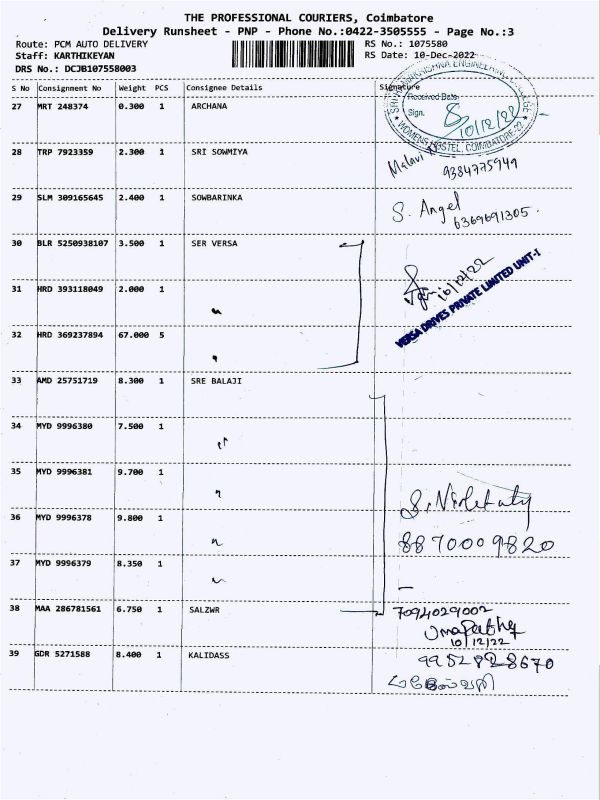 THE PROFESSIONAL COURIERS, Coimbatore
Delivery Runsheet - PNP - Phone No.:0422-3505555 - Page No.:3
Route: PCM AUTO DELIVERY
RS No.: 1075580
Staff: KARTHIKEYAN
RS Date: 10-Dec-2022
DRS No.: DCJB107558003
S No Consignment No Weight PCS Consignee Details Signature
27 MRT 248374 0.300 1 ARCHANA
ENGINEERING
Received Date
Sign.
10/12/22
WOMENS HOSTEL, COIMBATORE-22
28 TRP 7923359 2.300 1 SRI SOWMIYA
Malavi
9384775949
29 SLM 309165645 2.400 1 SOWBARINKA
S. Angel
6369691305.
30 BLR 5250938107 3.500 1 SER VERSA
31 HRD 393118049 2.000 1 "
10/12/22
VERSA DRIVES PRIVATE LIMITED UNIT-I
32 HRD 369237894 67.000 5 "
33 AMD 25751719 8.300 1 SRE BALAJI
34 MYD 9996380 7.500 1 "
35 MYD 9996381 9.700 1 "
36 MYD 9996378 9.800 1 "
8870009820
37 MYD 9996379 8.350 1 "
38 MAA 286781561 6.750 1 SALZWR
7094029002
10/12/22
39 GDR 5271588 8.400 1 KALIDASS
9952828670